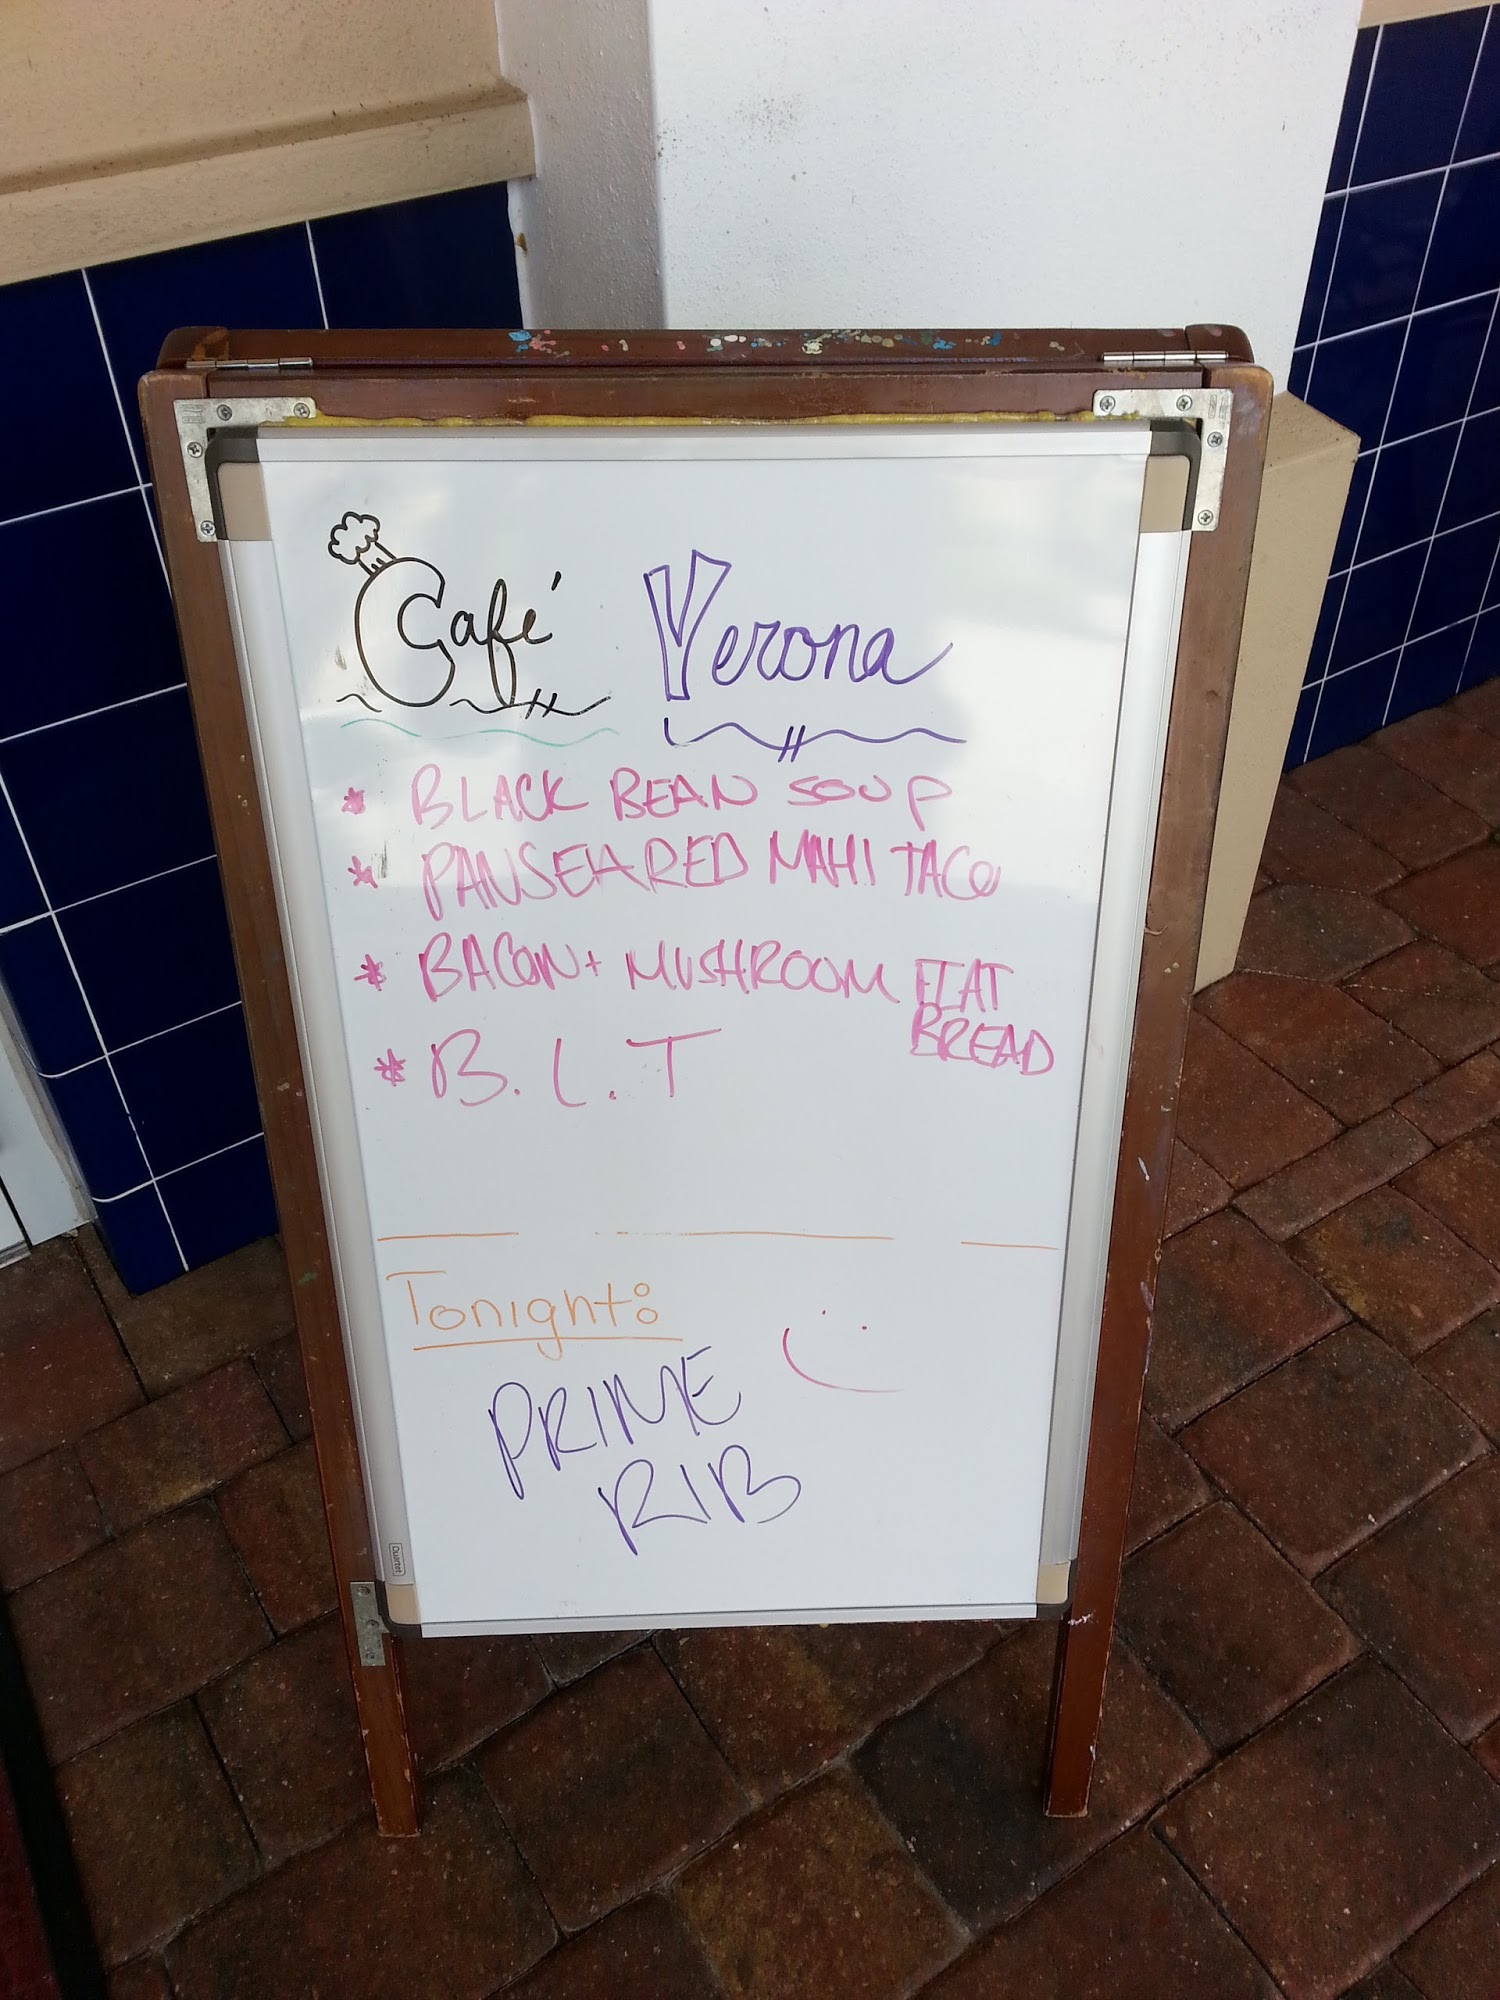 Café Verona
* BLACK BEAN SOUP
* PANSEARED MAHI TACO
* BACON + MUSHROOM FLAT
BREAD
* B.L.T
Tonight:
PRIME
RIB
Quartet